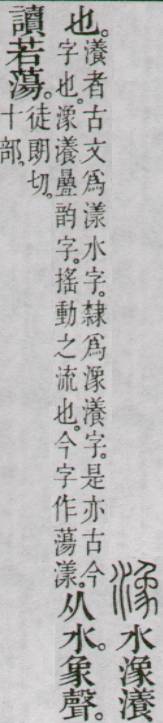 潒水潒瀁
也。瀁者古文爲漾水字。隸爲潒瀁字。是亦古今
字也。潒瀁曡韵字。搖動之流也。今字作蕩漾。从水。象聲。
讀若蕩。徒朗切。
十部。